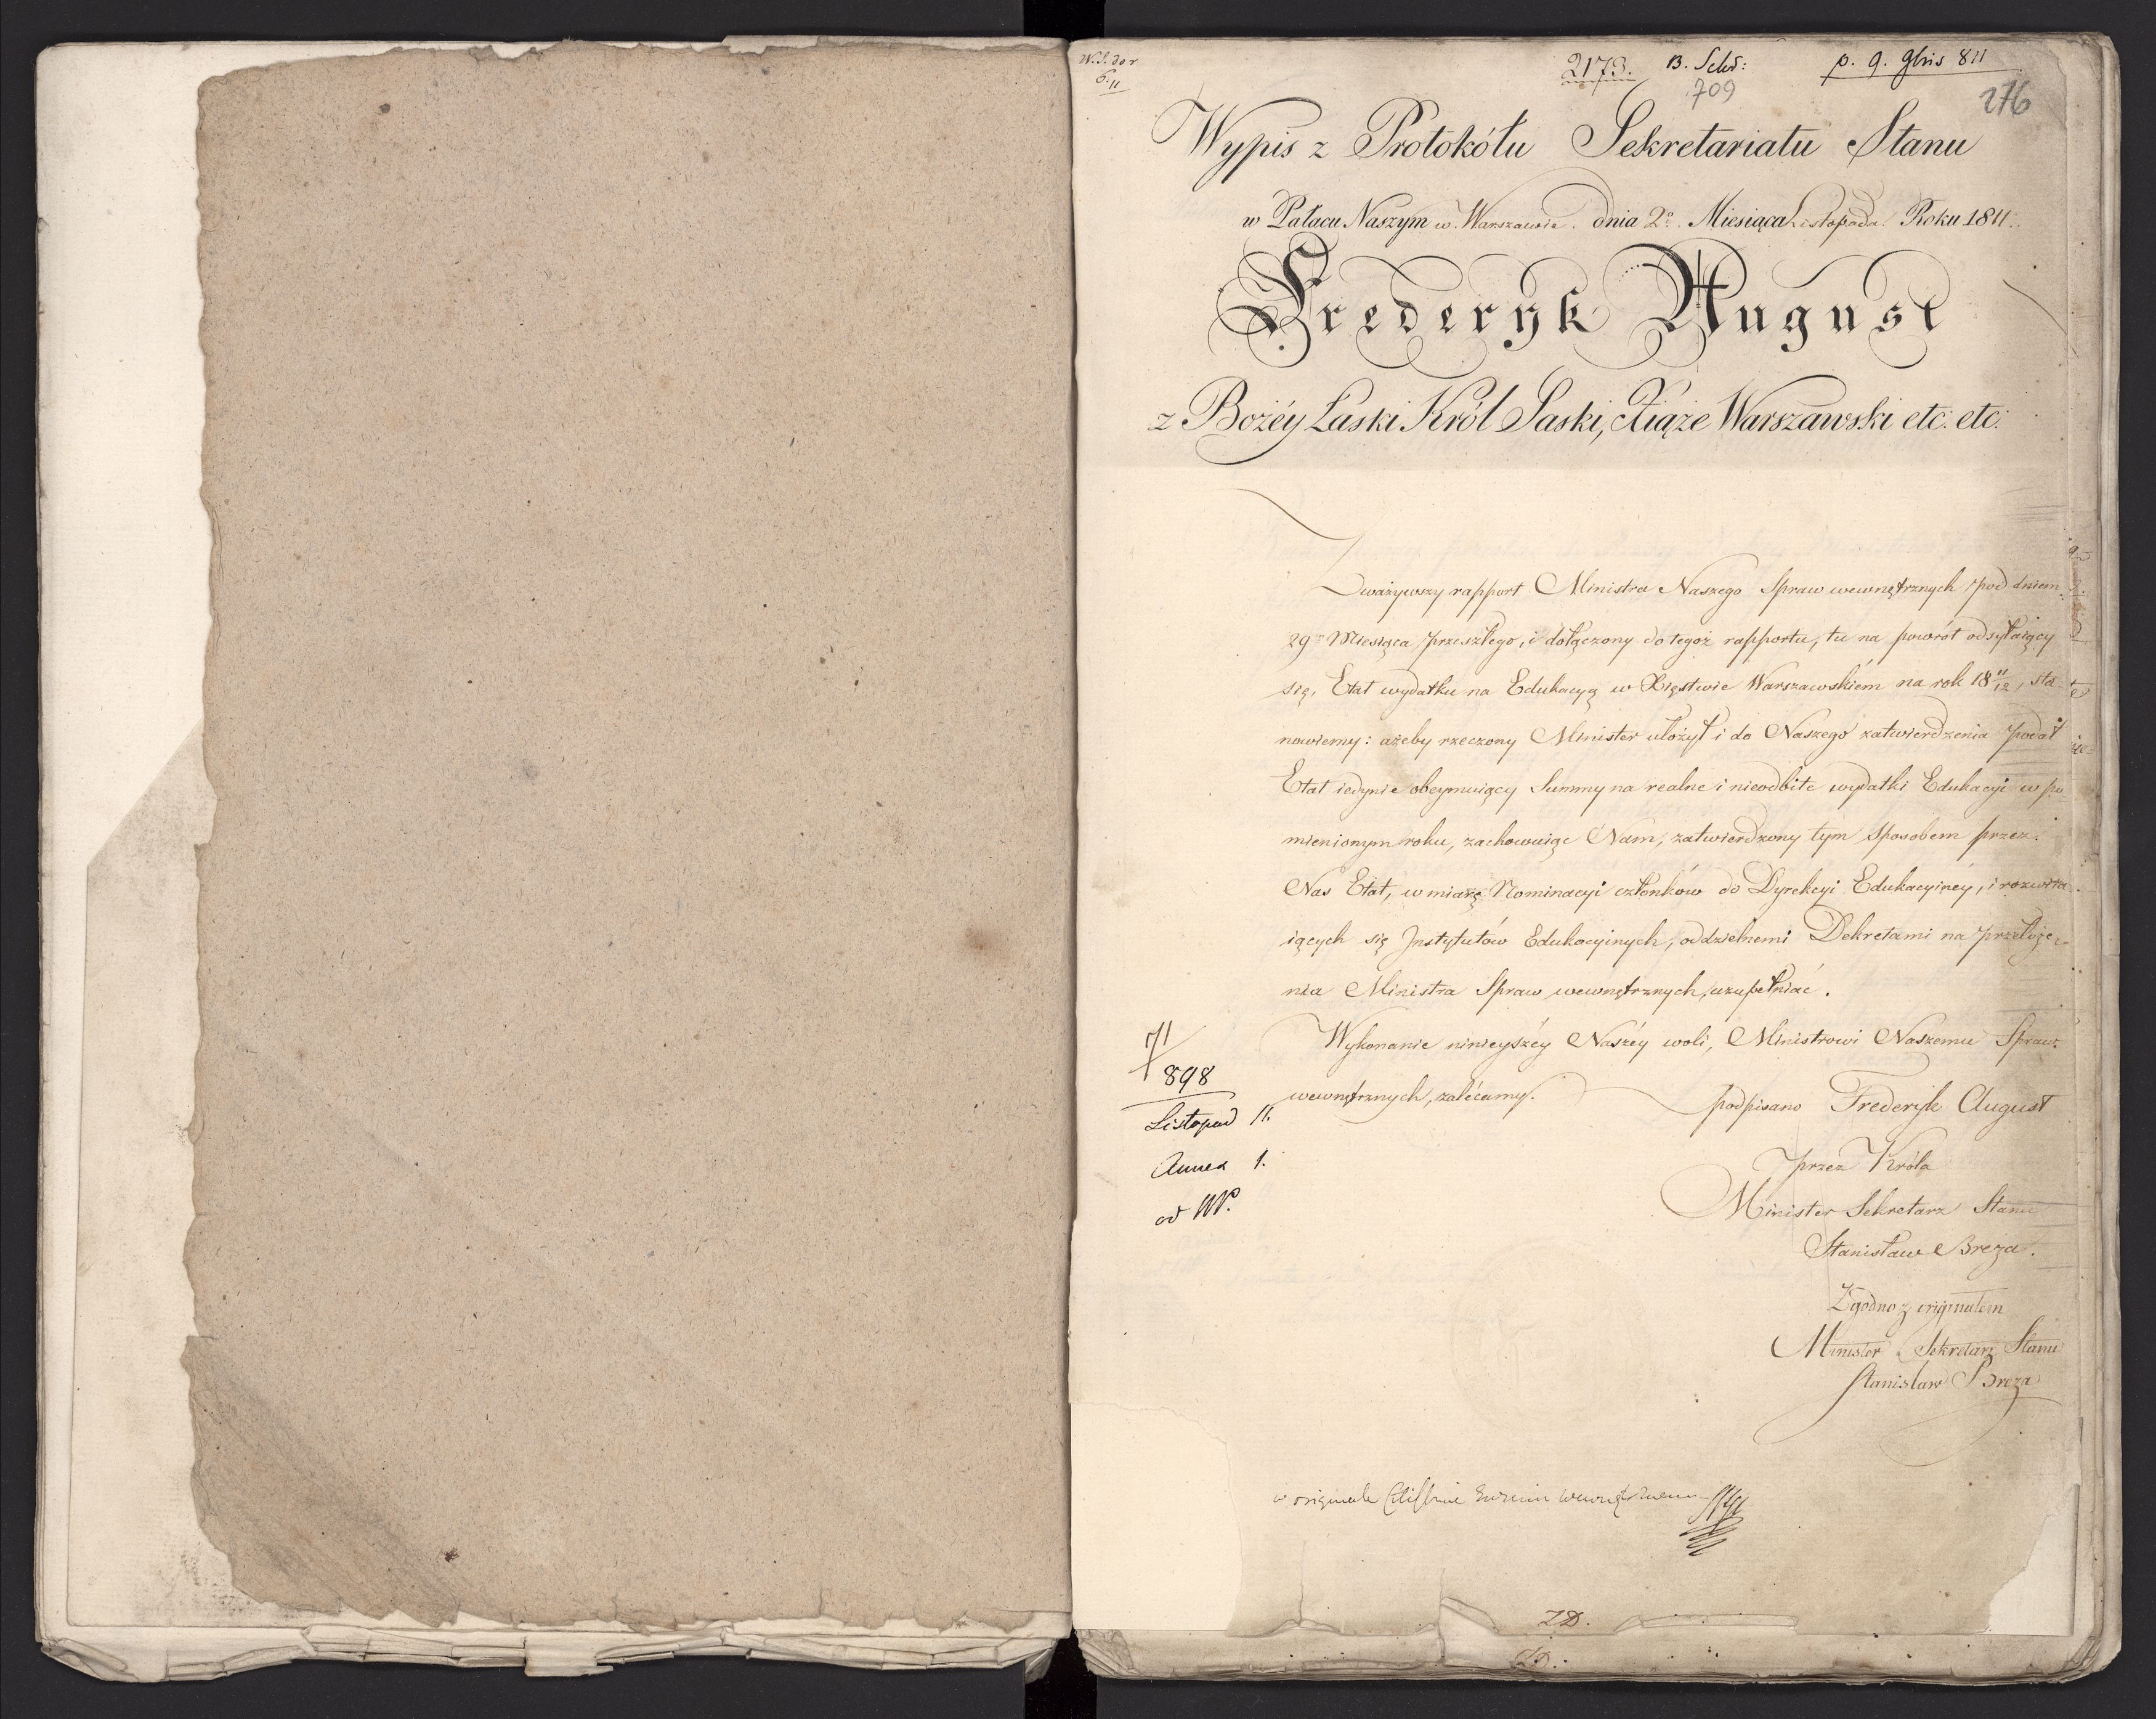 2173. B. Schd: p. 9. 9bris 811
709
276
Wypis z Protokółu Sekretariatu Stanu
w Pałacu Naszym w Warszawie. dnia 2º. Miesiąca Listopada. Roku 1811.
Frederyk August
z Bożéy Łaski Król Saski, Xiąże Warszawski etc: etc:
Zważywszy rapport Ministra Naszego Spraw wewnętrznych pod dniem
29 Miesiąca przeszłego, i dołączony do tegoż rapportu, tu na powrót odsyłaiący
się, Etat wydatku na Edukacyą w Xięstwie Warszawskiém na rok 18 11/12, sta-
nowiemy: ażeby rzeczony Minister ułożył i do Naszego zatwierdzenia podał
Etat iedynie obeymuiący Summy na realne i nieodbite wydatki Edukacyi w po-
mienionym roku, zachowuiąc Nam, zatwierdzony tym sposobem przez
Nas Etat, w miarę Nominacyi członków do Dyrekcyi Edukacyinéy, i rozwiia-
iących się Instytutów Edukacyinych, oddzielnemi Dekretami na przełoże-
nia Ministra Spraw wewnętrznych, uzupełniać.
Wykonanie ninieyszéy Naszéy woli, Ministrowi Naszemu Spraw
wewnętrznych, zalécamy.
podpisano Frederyk August
przez Króla
Minister Sekretarz Stanu
Stanisław Breza.
Zgodno z oryginałem
Minister Sekretarz Stanu
Stanisław Breza
71
898
Listopad 11.
Annex 1.
od
w originale
ZD.